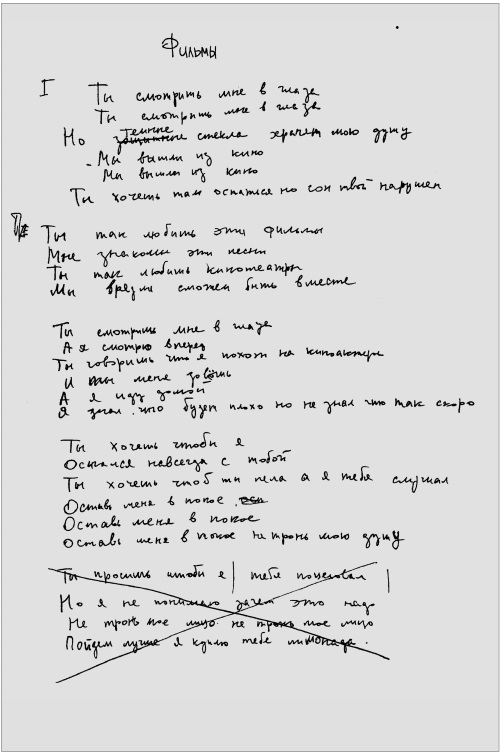 Фильмы
I
Ты смотришь мне в глаза
Ты смотришь мне в глаза
Но темные стекла хранят мою душу
- Мы вышли из кино
Мы вышли из кино
Ты хочешь там остаться но сон твой нарушен
Ты так любишь эти фильмы
Мне знакомы эти песни
Ты так любишь кинотеатры
Мы вряд ли сможем быть вместе
Ты смотришь мне в глаза
А я смотрю вперед
Ты говоришь что я похож на киноактера
И ты меня зовёшь
А я иду домой
Я знал что будет плохо но не знал что так скоро
Ты хочешь чтобы я
Остался навсегда с тобой
Ты хочешь чтоб ты пела а я тебя слушал
Оставь меня в покое
Оставь меня в покое
Оставь меня в покое не тронь мою душу
Ты просишь чтобы я тебя поцеловал
Но я не понимаю зачем это надо
Не тронь мое лицо не тронь мое лицо
Пойдем лучше я куплю тебе лимонада.